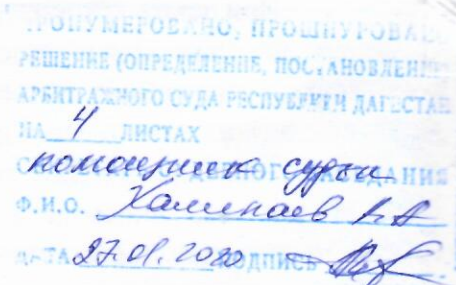 ПРОНУМЕРОВАНО, ПРОШНУРОВАНО
РЕШЕНИЕ (ОПРЕДЕЛЕНИЕ, ПОСТАНОВЛЕНИЕ
АРБИТРАЖНОГО СУДА РЕСПУБЛИКИ ДАГЕСТАН
НА 4 ЛИСТАХ
помощник судьи
Ф.И.О.
ДАТА 27.01.2020 ПОДПИСЬ